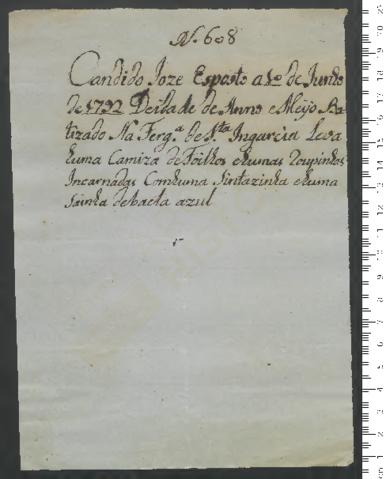 N. 608
Candido Joze Esposto a 10 de Junho
de 1792 De idade de Anno e Meyo Ba
tizado Na Ferg.ª de S.ta Ingarcia Leva
huma Camiza de Foilhos e humas Roupinhas
Incarnadas Com huma Sintazinha e huma
Sainha de baeta azul